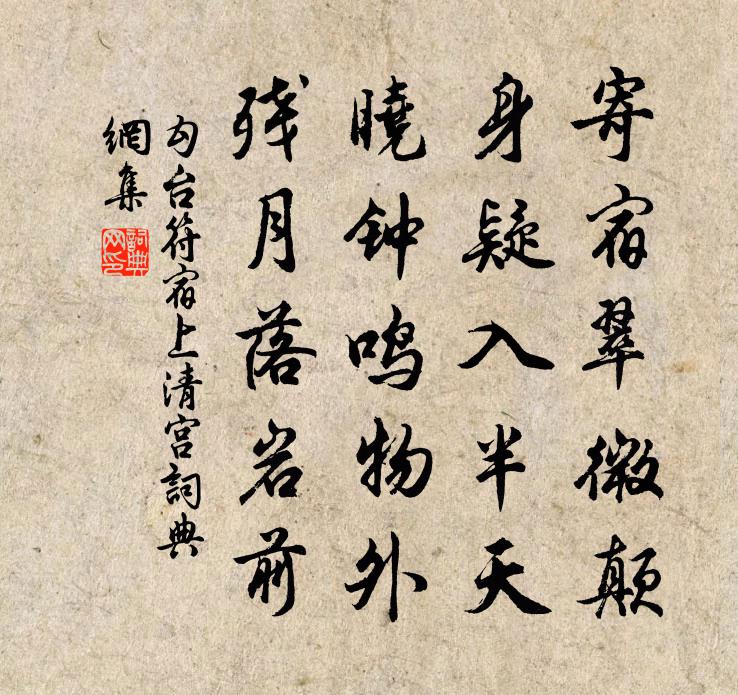 寄宿翠微颠
身疑入半天
晓钟鸣物外
残月落岩前
勾台符宿上清宫詞典
網集
詞典网印